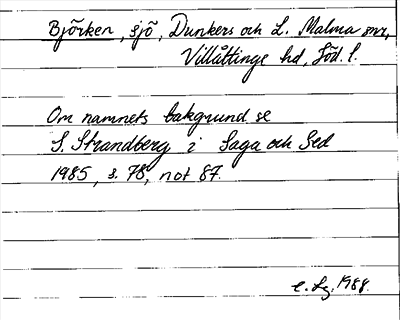 Björken, sjö, Dunkers och L. Malma snr,
Villåttinge hd, Söd. l.
Om namnets bakgrund se
S. Strandberg i Saga och Sed
1985, s. 78, not 87.
1988.